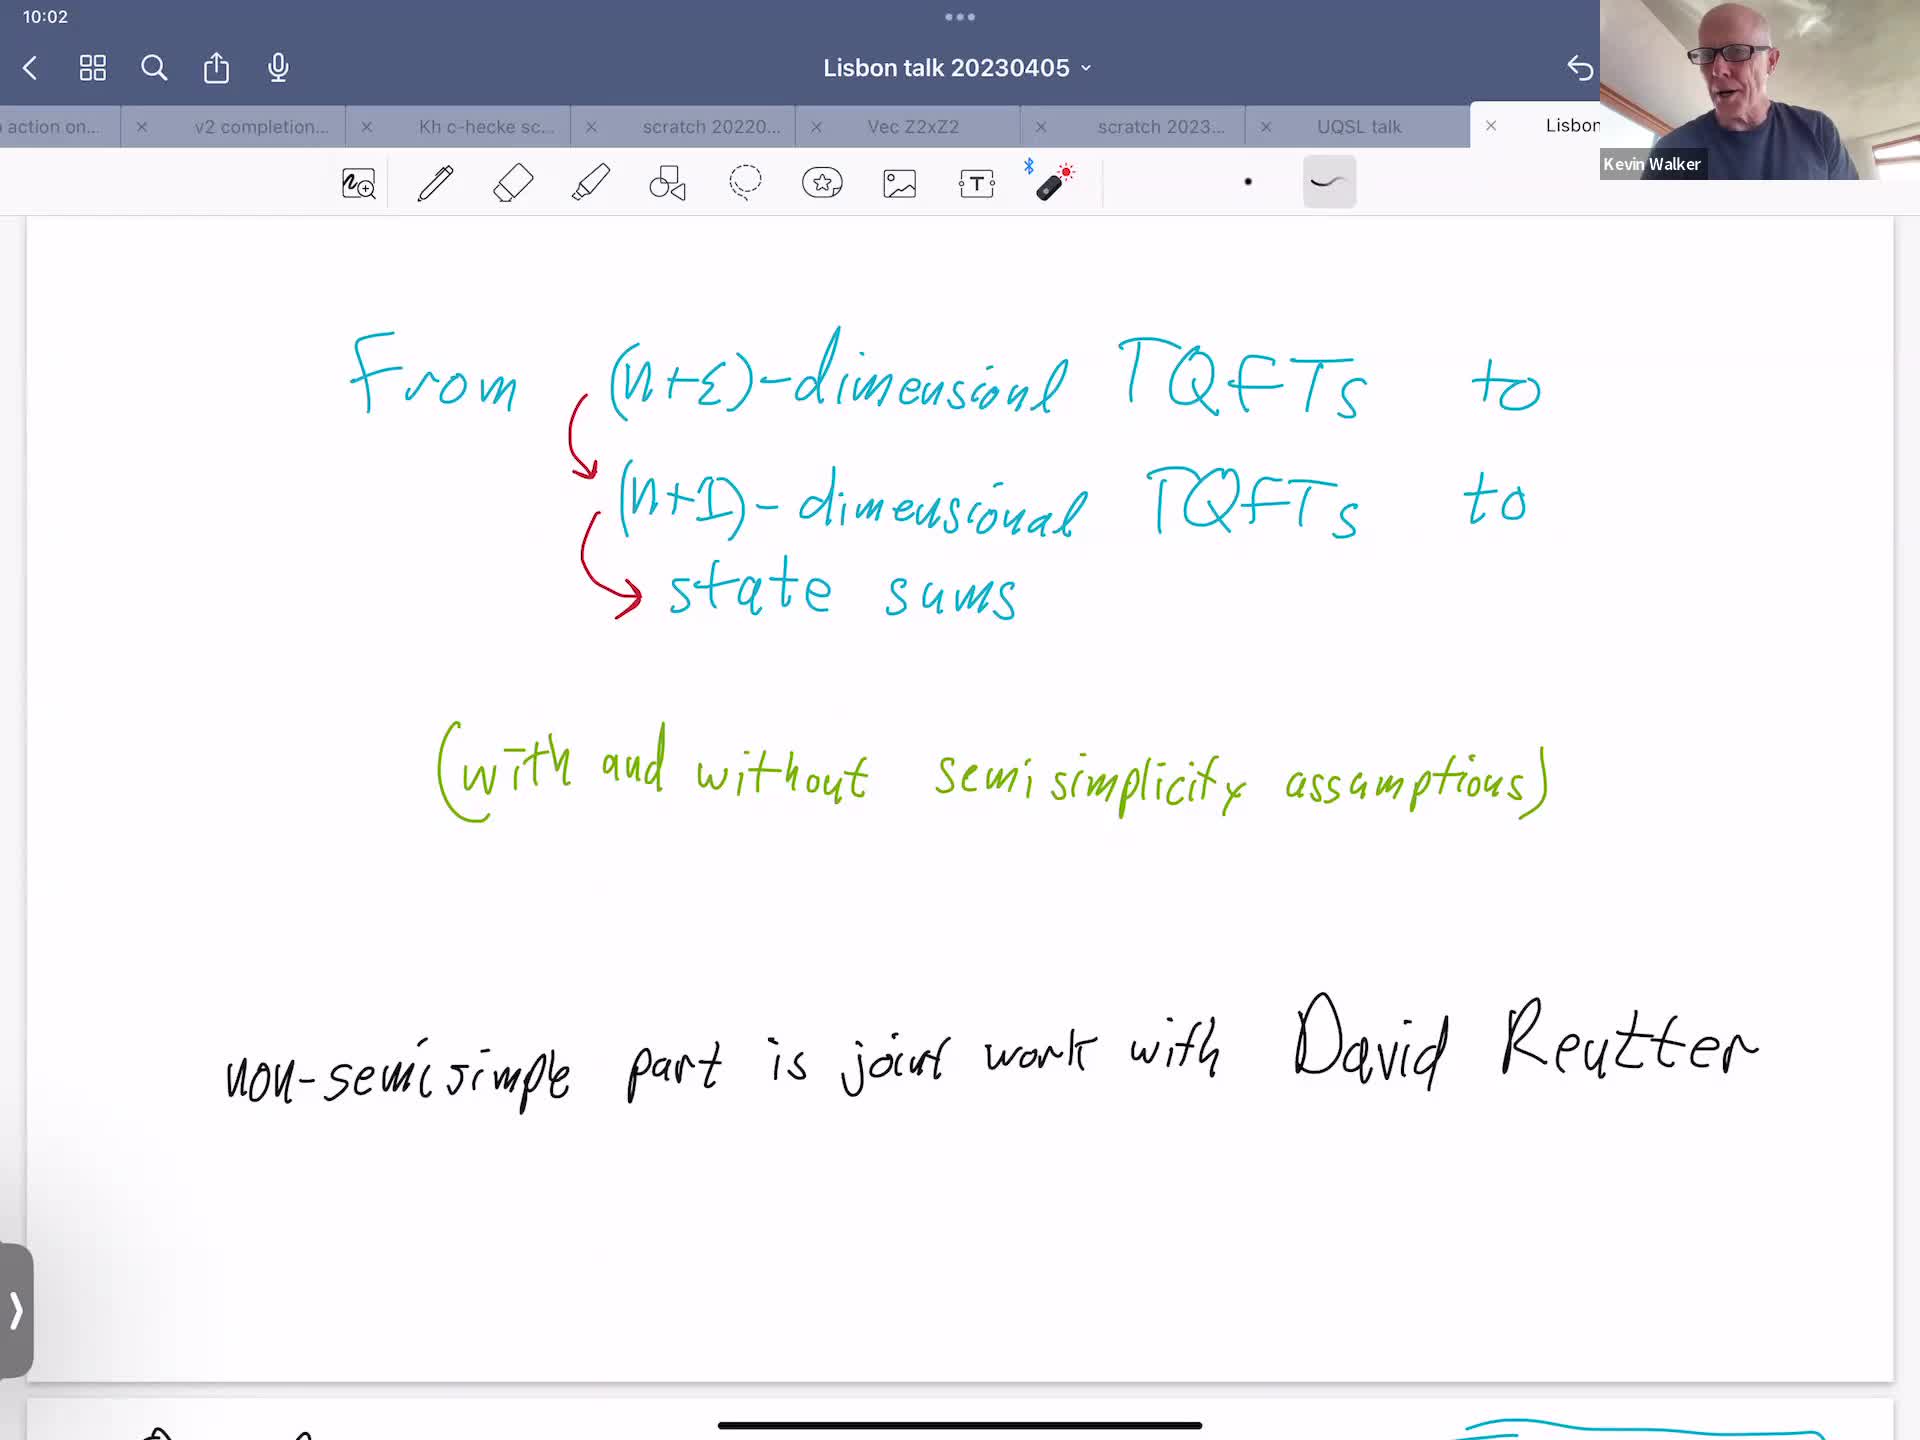 10:02
Lisbon talk 20230405
action on...
v2 completion...
Kh c-hecke sc...
scratch 20220...
Vec Z2xZ2
scratch 2023...
UQSL talk
Lisbon
Kevin Walker
From (n+ε)-dimensionl TQFTs to
(n+1)-dimensional TQFTs to
state sums
(with and without semisimplicity assumptions)
non-semisimple part is joint work with David Reutter